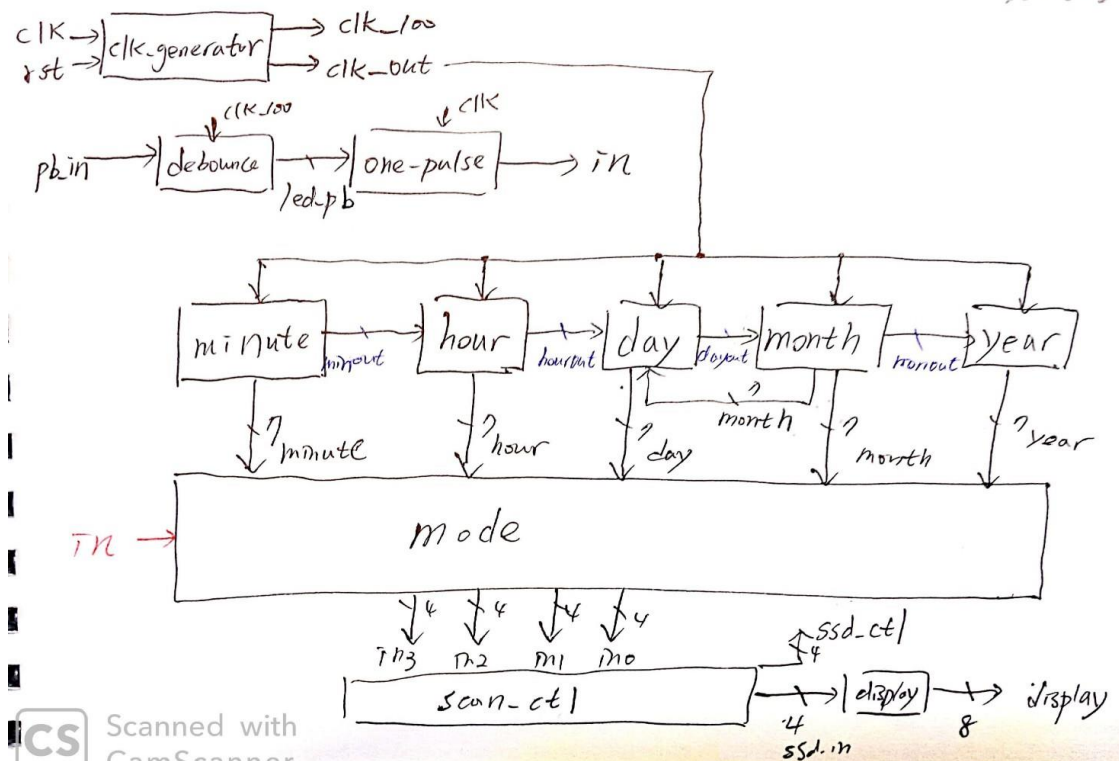 clk
rst
clk_generator
clk_100
clk_out
clk_100
clk
pb_in
debounce
one-pulse
in
led_pb
minute
hour
day
month
year
minout
hourout
dayout
monout
7
month
7
minute
7
hour
7
day
7
month
7
year
in
mode
4
4
4
4
in3
in2
in1
in0
ssd_ctl
4
scan_ctl
display
display
4
8
ssd_in
CS
Scanned with
CamScanner